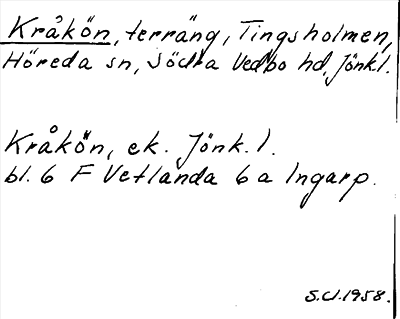 Kråkön, terräng, Tingsholmen,
Höreda sn, Södra Vedbo hd, Jönk.l.
Kråkön, ek. Jönk. l.
bl. 6 F Vetlanda 6 a Ingarp.
S.CJ.1958.